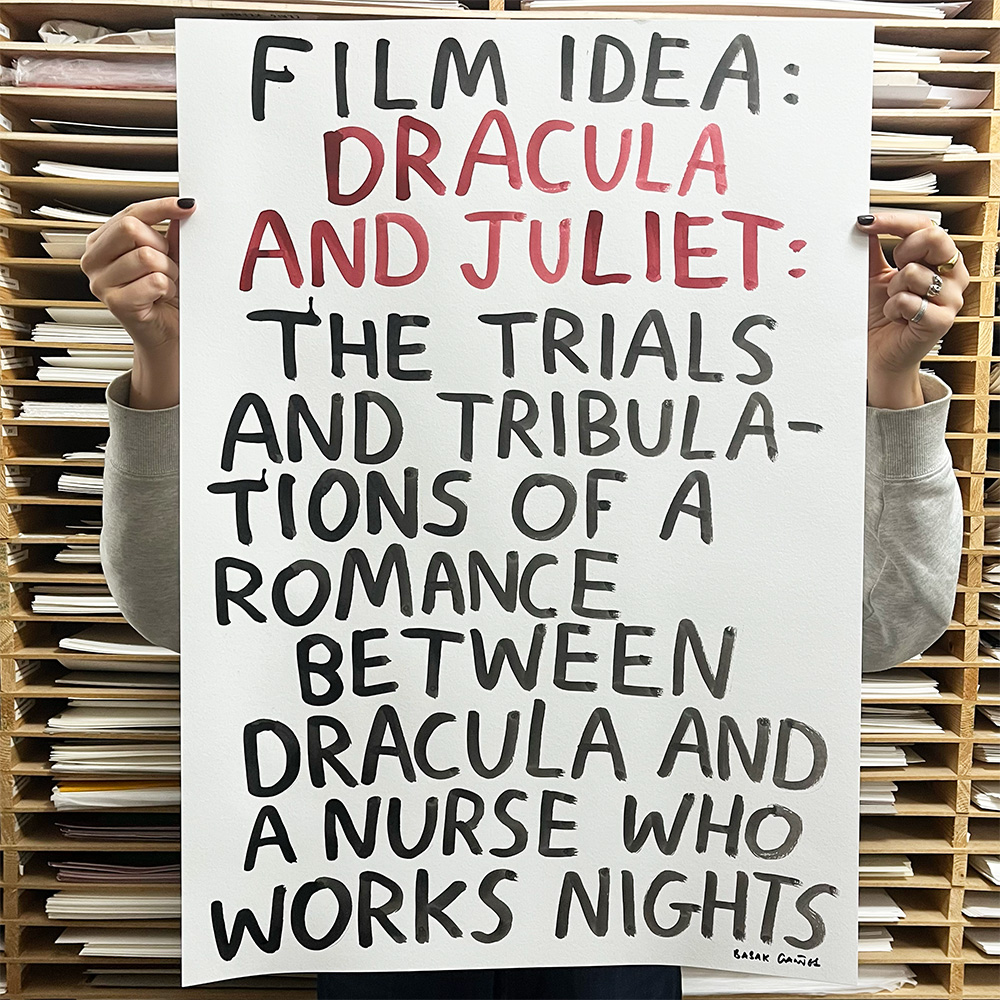 FILM IDEA:
DRACULA
AND JULIET:
THE TRIALS
AND TRIBULA-
TIONS OF A
ROMANCE
BETWEEN
DRACULA AND
A NURSE WHO
WORKS NIGHTS
BASAK